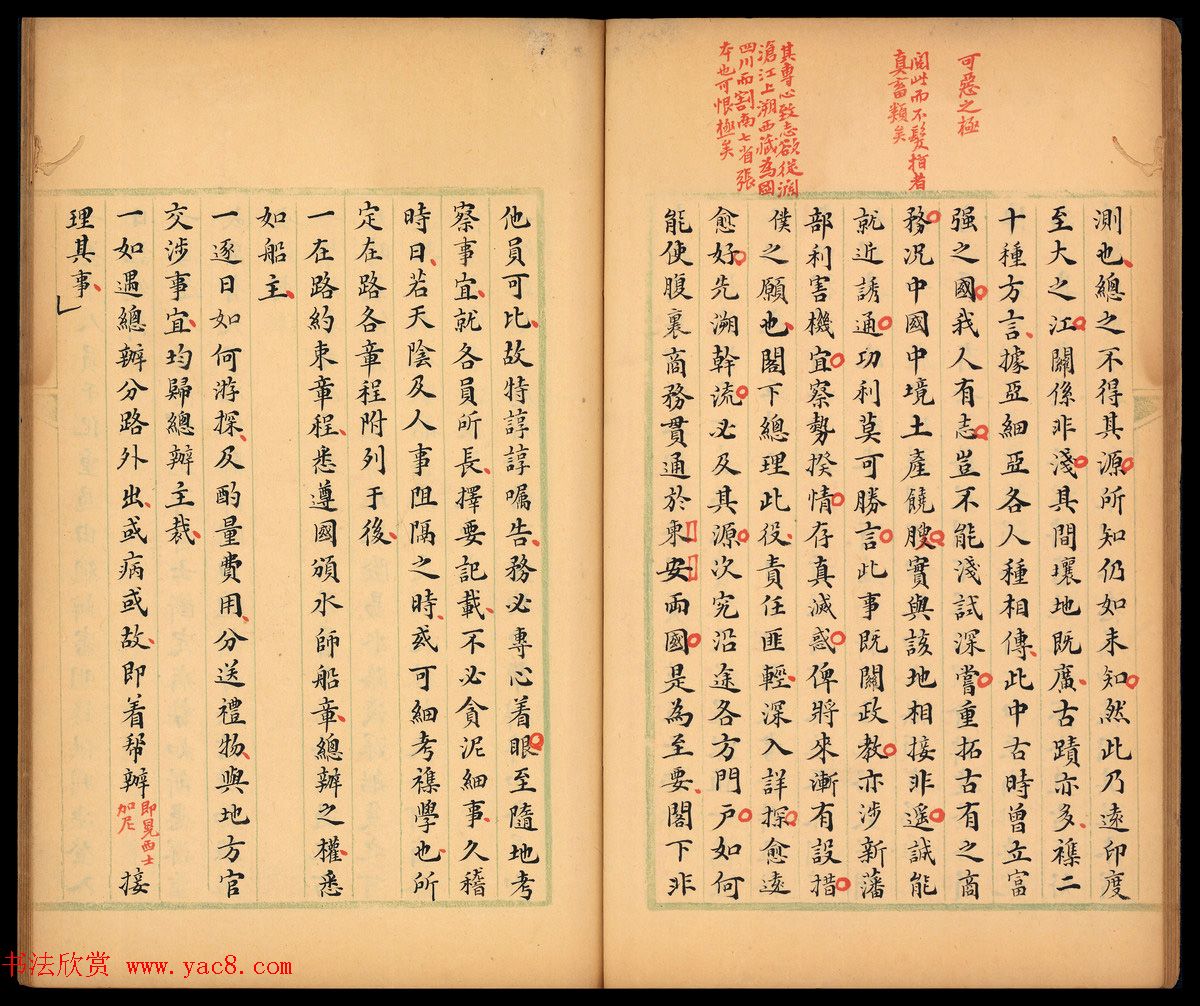 可惡之極
閱此而不髮指者
真畜類矣
其專心致志欲從瀾
滄江上溯西藏為國
四川而割兩七省張
本也可恨極矣
測也總之不得其源所知仍如未知然此乃遠印度
至大之江關係非淺其間壤地既廣古蹟亦多襍二
十種方言據亞細亞各人種相傳此中古時曾立富
强之國我人有志豈不能淺試深嘗重拓古有之商
務況中國中境土產饒腴實與該地相接非遥誠能
就近誘通功利莫可勝言此事既關政教亦涉新藩
部利害機宜察勢揆情存真滅惑俾將來漸有設措
僕之願也閣下總理此役責任匪輕深入詳探愈遠
愈好先溯幹流必及其源次究沿途各方門戶如何
能使腹裏商務貫通於東安兩國是為至要閣下非
他員可比故特諄諄囑告務必專心着眼至隨地考
察事宜就各員所長擇要記載不必貪泥細事久稽
時日若天陰及人事阻隔之時或可細考襍學也所
定在路各章程附列于後
一在路約束章程悉遵國頒水師船章總辦之權悉
如船主
一逐日如何游探及酌量費用分送禮物與地方官
交涉事宜均歸總辦主裁
一如遇總辦分路外出或病或故即着帮辦即晃西士加尼接
理其事
书法欣赏 www.yac8.com